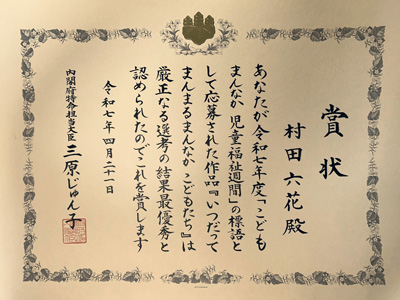 賞状
村田六花殿
あなたが令和七年度「こども
まんなか 児童福祉週間」の標語と
して応募された作品『いつだって
まんまるまんなか こどもたち』は
厳正なる選考の結果最優秀と
認められたのでこれを賞します
令和七年四月二十一日
内閣府特命担当大臣 三原じゅん子